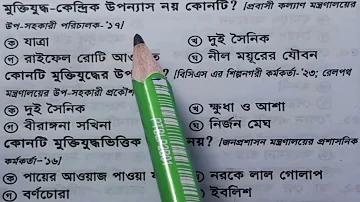 মুক্তিযুদ্ধ-কেন্দ্রিক উপন্যাস নয় কোনটি? [প্রবাসী কল্যাণ মন্ত্রণালয়ের
উপ-সহকারী পরিচালক-'১৭]
ক যাত্রা খ দুই সৈনিক
গ রাইফেল রোটি আওরাত ঘ নীল ময়ূরের যৌবন
কোনটি মুক্তিযুদ্ধের উপ [বিসিএস এর শিল্পনগরী কর্মকর্তা-'২৩; রেলপথ
মন্ত্রণালয়ের উপ-সহকারী প্রকৌশ
ক দুই সৈনিক খ ক্ষুধা ও আশা
গ বীরাঙ্গনা সখিনা ঘ নির্জন মেঘ
কোনটি মুক্তিযুদ্ধভিত্তিক নয়? [জনপ্রশাসন মন্ত্রণালয়ের প্রশাসনিক
কর্মকর্তা-'১৬]
ক পায়ের আওয়াজ পাওয়া য নরকে লাল গোলাপ
গ বর্ণচোরা ইবলিশ